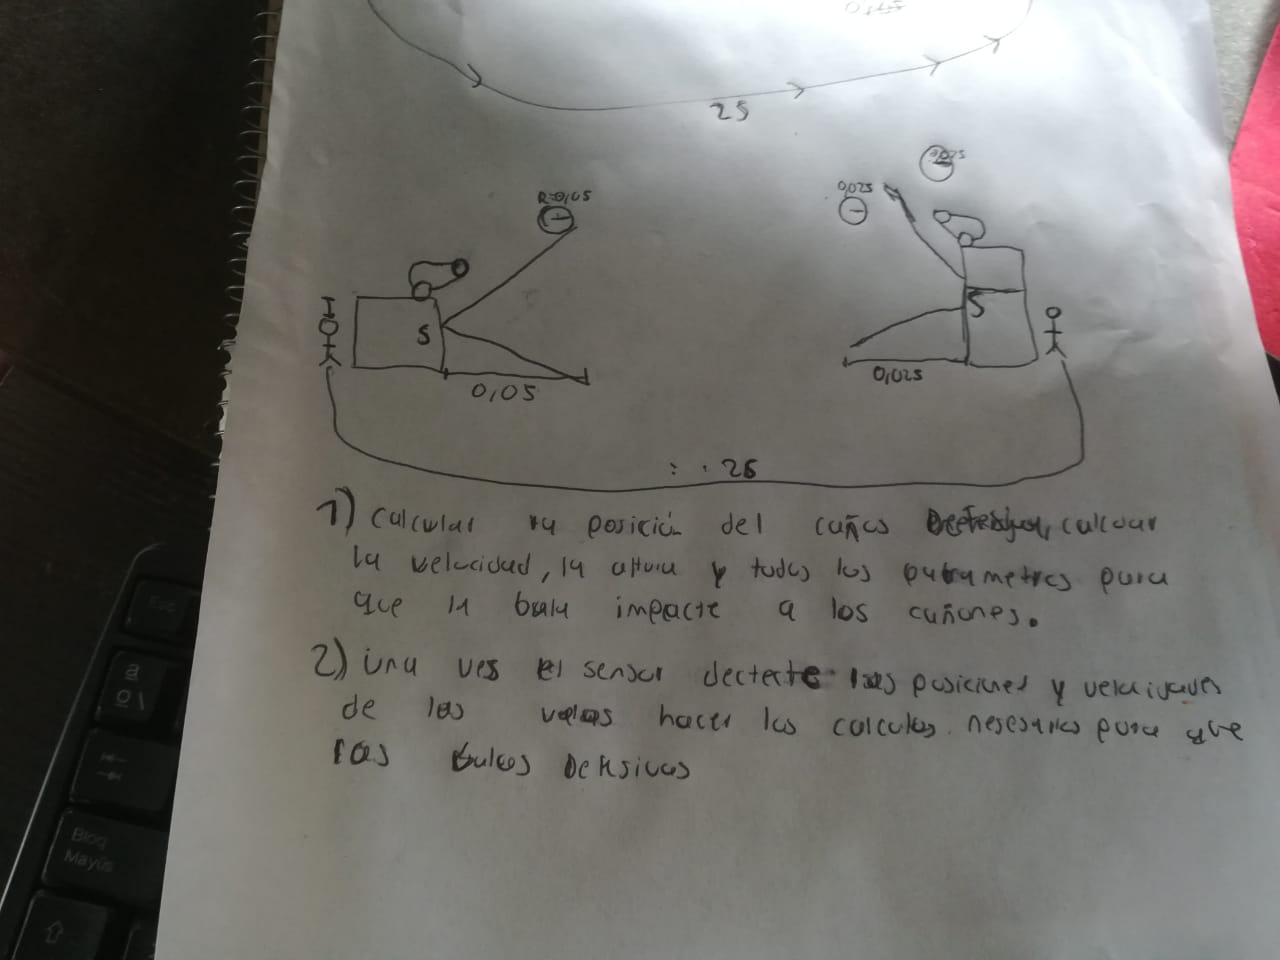 25
0,025
R=0,05
0,025
S
S
0,05
0,025
: . 26
1) calcular la posición del cañas calcular
la velocidad, la altura y todos los parametros para
que la bala impacte a los cañones.
2) una ves el sensor dectecte las posiciones y velocidades
de las hacer los calculos nesesarios para que
las Defsivas
Esc
ª
º \
Bloq
Mayús